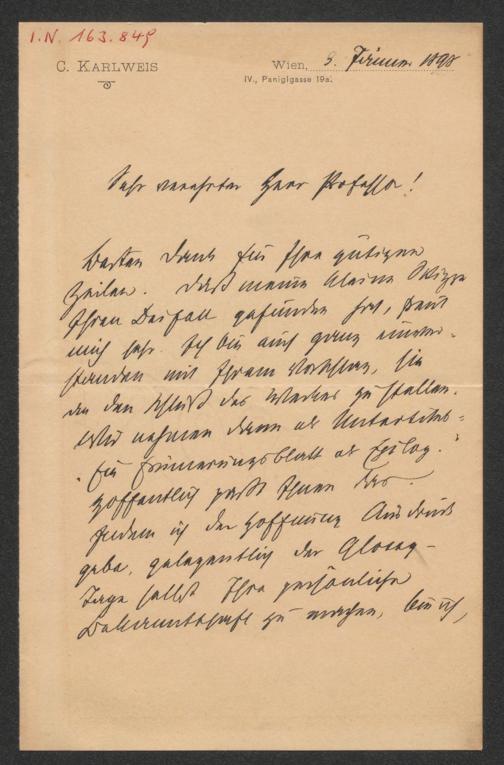 I.N. 163.849
C. KARLWEIS
Wien, 3. Februar 1898
IV., Paniglgasse 19a.
Sehr verehrter Herr Professor!
Besten Dank für Ihre gütigen
Zeilen. Daß meine kleine Skizze
Ihren Beifall gefunden hat, freut
mich sehr. Ich bin auch ganz einver-
standen mit Ihrem Vorschlag, sie
an den Schluß des Werkes zu stellen.
Wir nehmen dann als Untertitel:
"Ein Erinnerungsblatt als Epilog."
Hoffentlich paßt Ihnen das.
Indem ich der Hoffnung Ausdruck
gebe, gelegentlich der
Tage selbst Ihre persönliche
Bekanntschaft zu machen, bin ich,